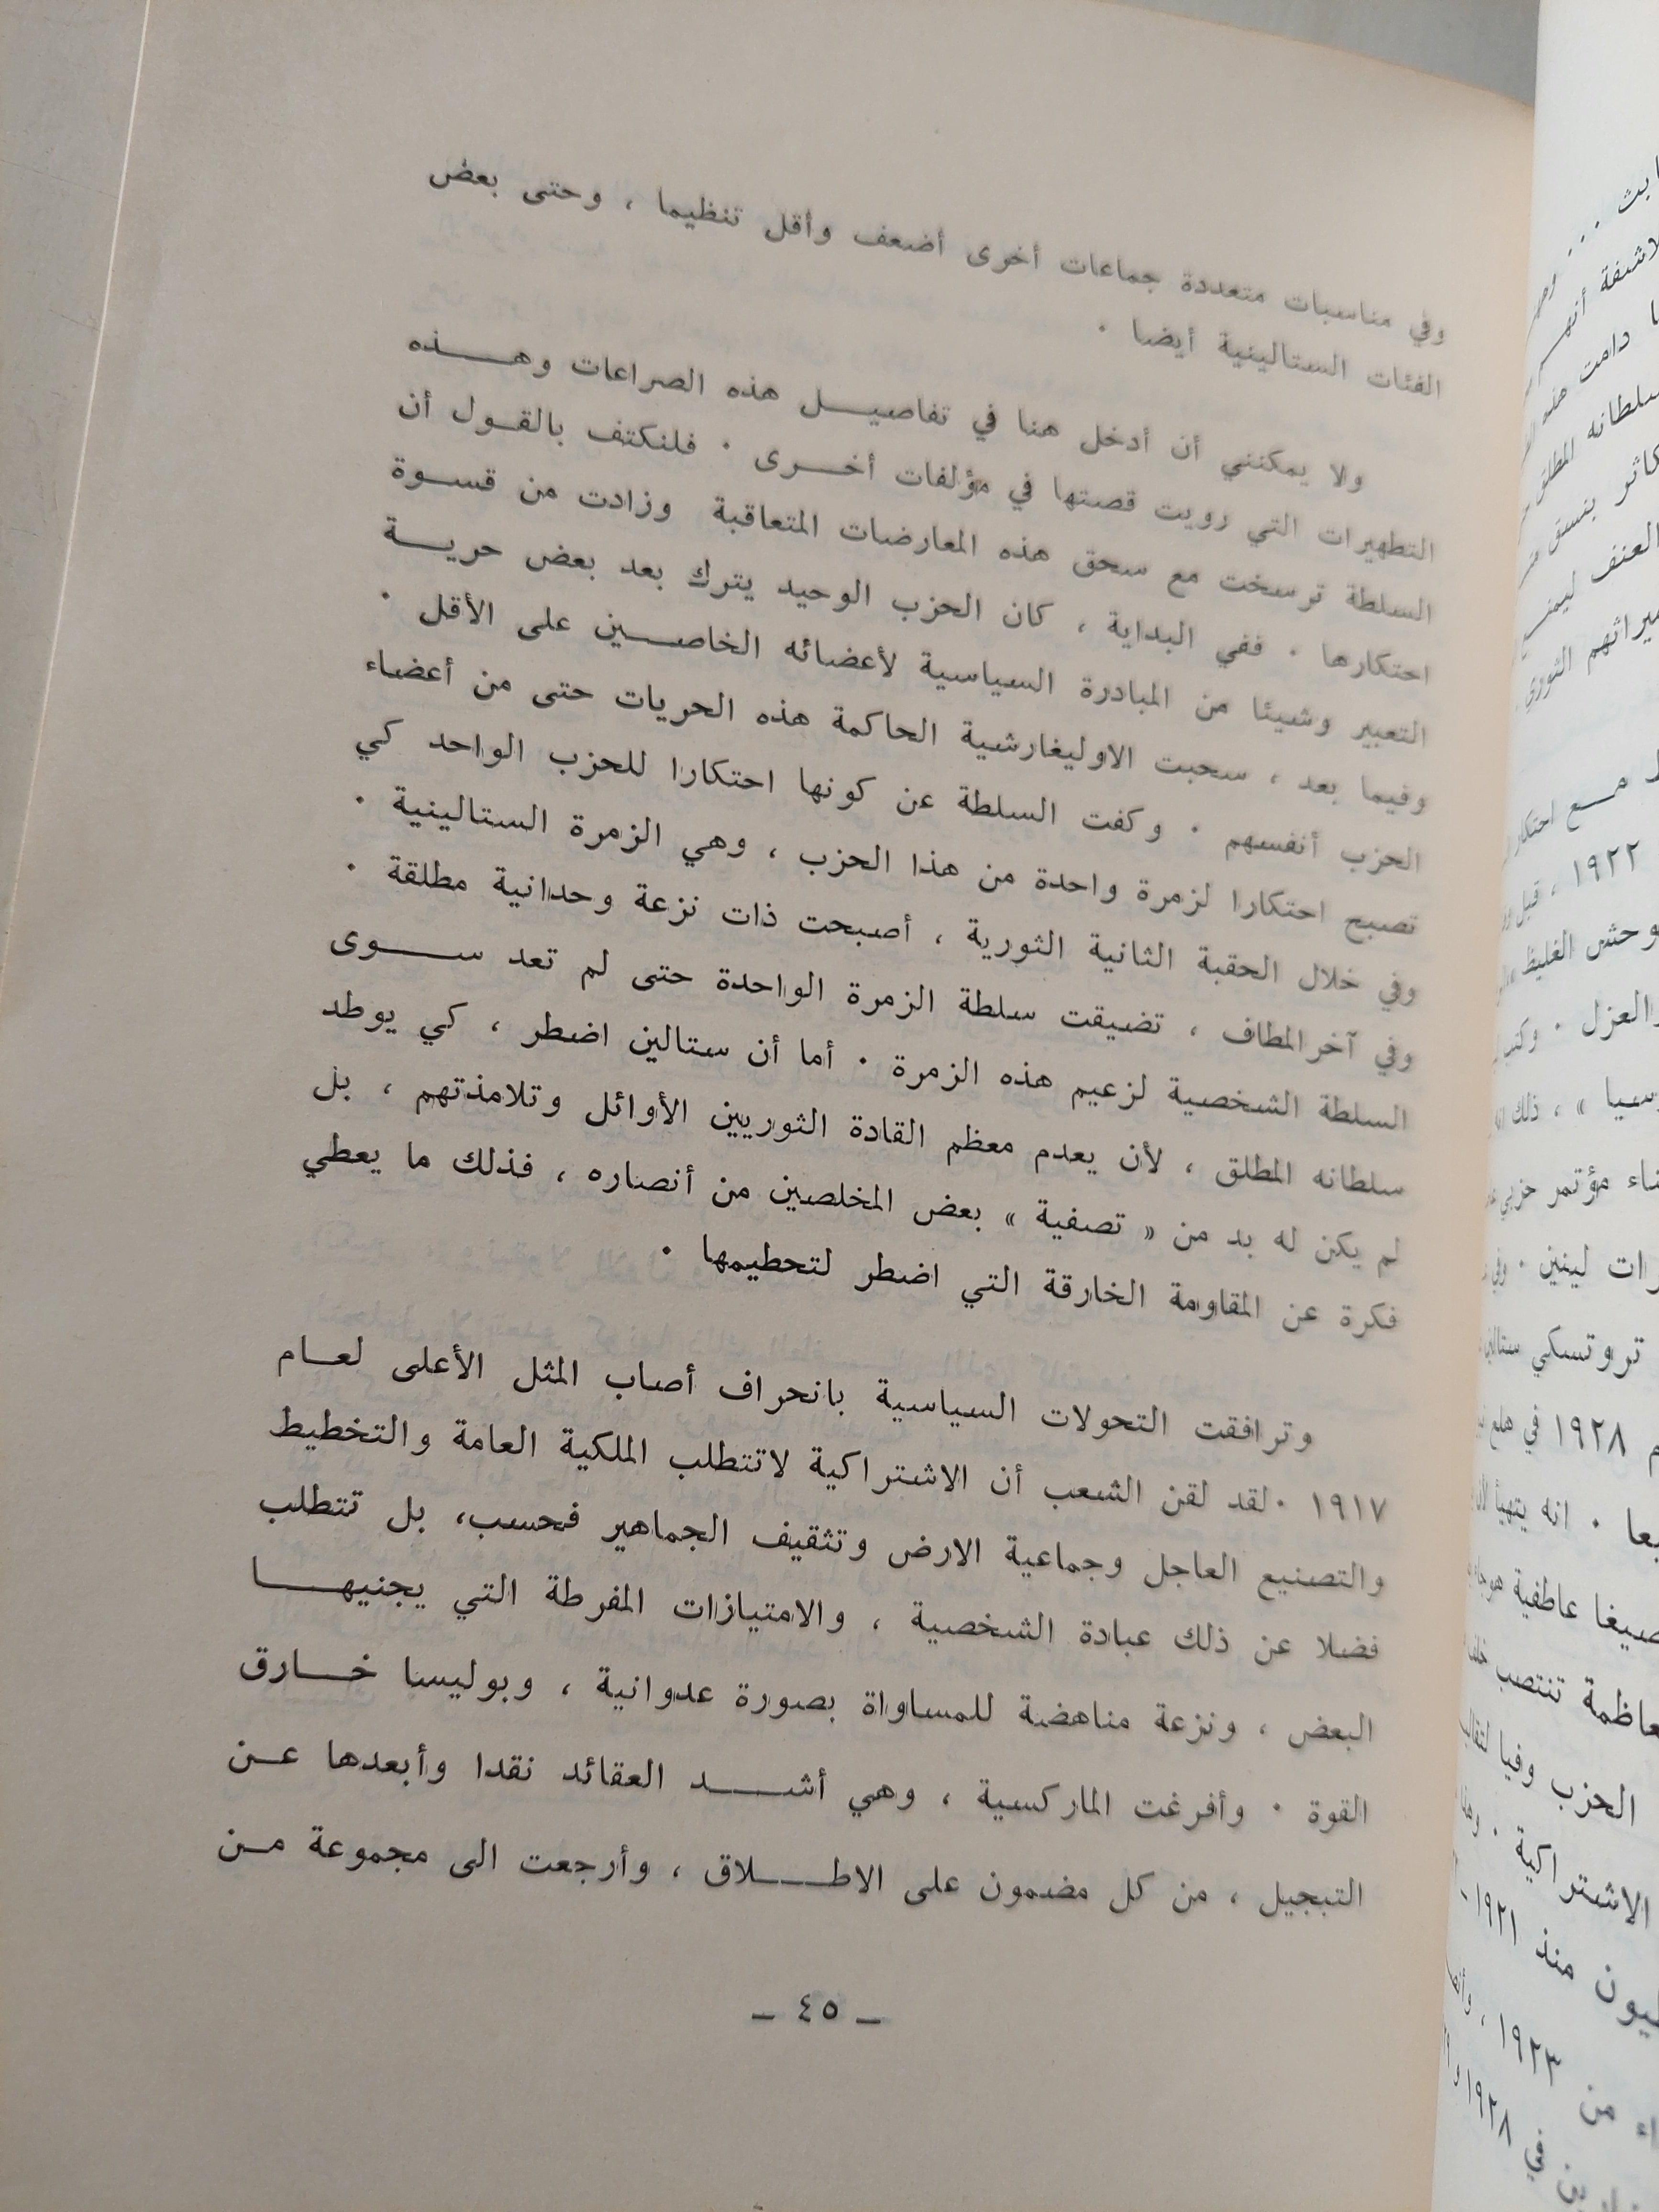 وفي مناسبات متعددة جماعات أخرى أضعف وأقل تنظيما ، وحتى بعض
الفئات الستالينية أيضا .
ولا يمكنني أن أدخل هنا في تفاصيل هذه الصراعات وهذه
التطهيرات التي رويت قصتها في مؤلفات أخرى . فلنكتف بالقول أن
السلطة ترسخت مع سحق هذه المعارضات المتعاقبة وزادت من قسوة
احتكارها . ففي البداية ، كان الحزب الوحيد يترك بعد بعض حرية
التعبير وشيئا من المبادرة السياسية لأعضائه الخاصين على الأقل .
وفيما بعد ، سحبت الاوليغارشية الحاكمة هذه الحريات حتى من أعضاء
الحزب أنفسهم . وكفت السلطة عن كونها احتكارا للحزب الواحد كي
تصبح احتكارا لزمرة واحدة من هذا الحزب ، وهي الزمرة الستالينية .
وفي خلال الحقبة الثانية الثورية ، أصبحت ذات نزعة وحدانية مطلقة .
وفي آخر المطاف ، تضيقت سلطة الزمرة الواحدة حتى لم تعد سوى
السلطة الشخصية لزعيم هذه الزمرة . أما أن ستالين اضطر ، كي يوطد
سلطانه المطلق ، لأن يعدم معظم القادة الثوريين الأوائل وتلامذتهم ، بل
لم يكن له بد من « تصفية » بعض المخلصين من أنصاره ، فذلك ما يعطي
فكرة عن المقاومة الخارقة التي اضطر لتحطيمها .
وترافقت التحولات السياسية بانحراف أصاب المثل الأعلى لعام
١٩١٧ . لقد لقن الشعب أن الاشتراكية لاتتطلب الملكية العامة والتخطيط
والتصنيع العاجل وجماعية الارض وتثقيف الجماهير فحسب، بل تتطلب
فضلا عن ذلك عبادة الشخصية ، والامتيازات المفرطة التي يجنيها
البعض ، ونزعة مناهضة للمساواة بصورة عدوانية ، وبوليسا خارق
القوة . وأفرغت الماركسية ، وهي أشد العقائد نقدا وأبعدها عن
التبجيل ، من كل مضمون على الاطلاق ، وأرجعت الى مجموعة من
ـ ٤٥ ـ